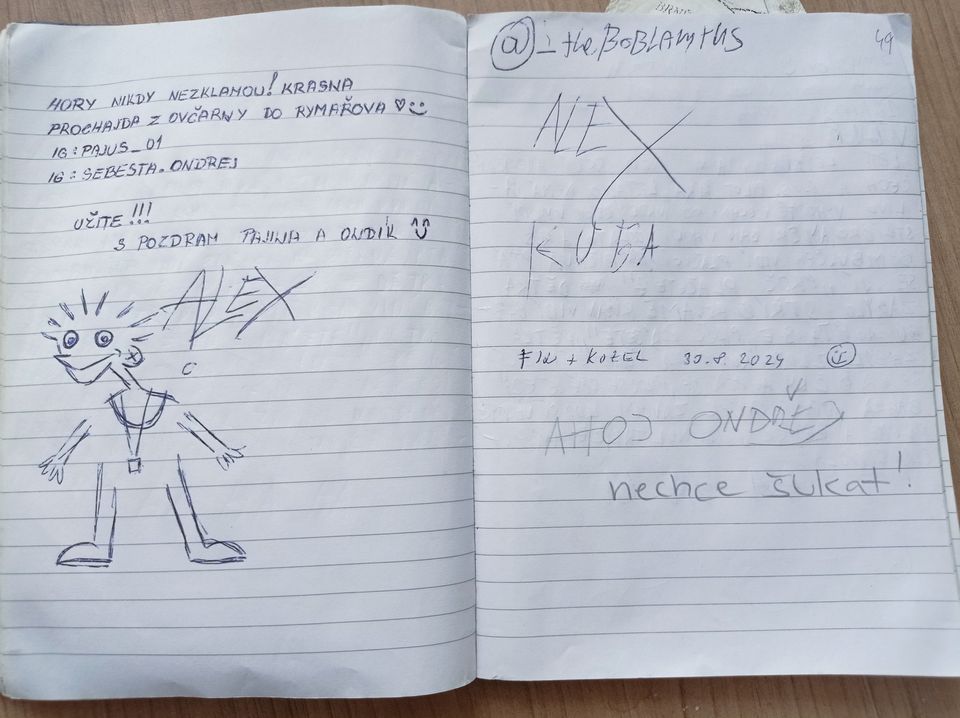 HORY NIKDY NEZKLAMOU! KRASNA
PROCHAJDA Z OVČARNY DO RYMAŘOVA
IG: PAJUS_01
IG: SEBESTA.ONDREJ
UŽITE!!!
S POZDRAM PAJINA A ONDIK
ALEX
@ the.BOBLAMTHS
49
KUBA
FIN + KOZEL 30.8.2024
AHOJ ONDŘEJ
nechce šukat!